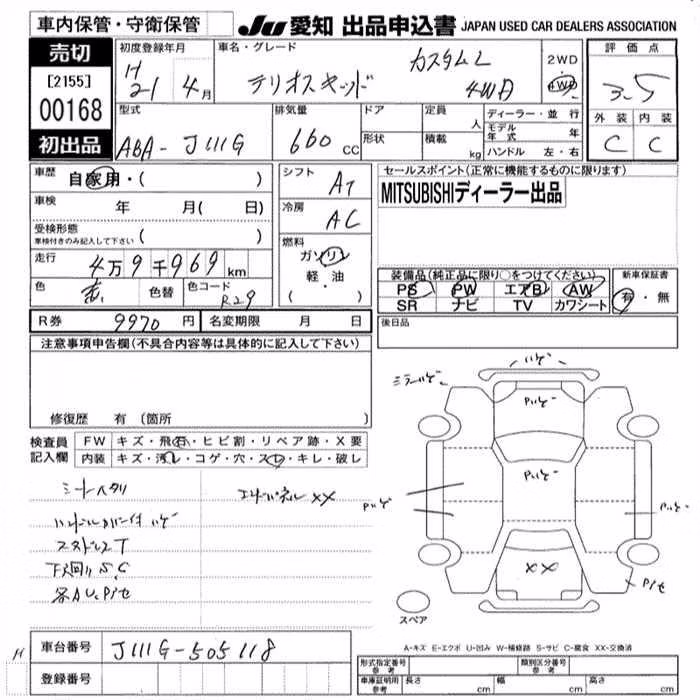 車内保管・守衛保管 JU 愛知 出品申込書 JAPAN USED CAR DEALERS ASSOCIATION
売切
[2155]
00168
初出品
初度登録年月 H 21 4 月
車名・グレード テリオスキッド カスタムL 4WD
2WD
4WD
評価点
3.5
外装 内装
C C
型式 ABA-J111G
排気量 660 cc
ドア
形状
定員 人
積載 kg
ディーラー・並行
モデル年式 年
ハンドル 左・右
車歴 自家用・( )
車検 年 月( 日)
受検形態
車検付きのみ記入して下さい ( )
走行 4万9千969 km
色 赤 色替 色コード R29
シフト AT
冷房 AC
燃料
ガソリン
軽・油
( ・ )
セールスポイント(正常に機能するものに限ります)
MITSUBISHIディーラー出品
装備品(純正品に限り○をつけてください)
PS PW エアB AW
SR ナビ TV カワシート
新車保証書
有・無
R券 9970 円 名変期限 月 日
後日品
注意事項申告欄(不具合内容等は具体的に記入して下さい)
修復歴 有 (箇所 )
検査員記入欄
FW キズ・飛石・ヒビ割・リペア跡・X要
内装 キズ・汚レ・コゲ・穴・スレ・キレ・破レ
シートヘタリ
エンドパネルXX
ハンドルカバー付 ハゲ
スタッドレスT
下廻りS.C
各AU.P1セ
ハゲ
ミラーハゲ
Pハゲ
Pハゲ
Pハゲ
Pハゲ
XX
P1セ
スペア
車台番号 J111G-505118
登録番号
A-キズ E-エクボ U-凹み W-補修跡 S-サビ C-腐食 XX-交換済
形式指定番号 参考
類別区分番号 参考
車庫証明用 参考 長さ cm 幅 cm 高さ cm
H